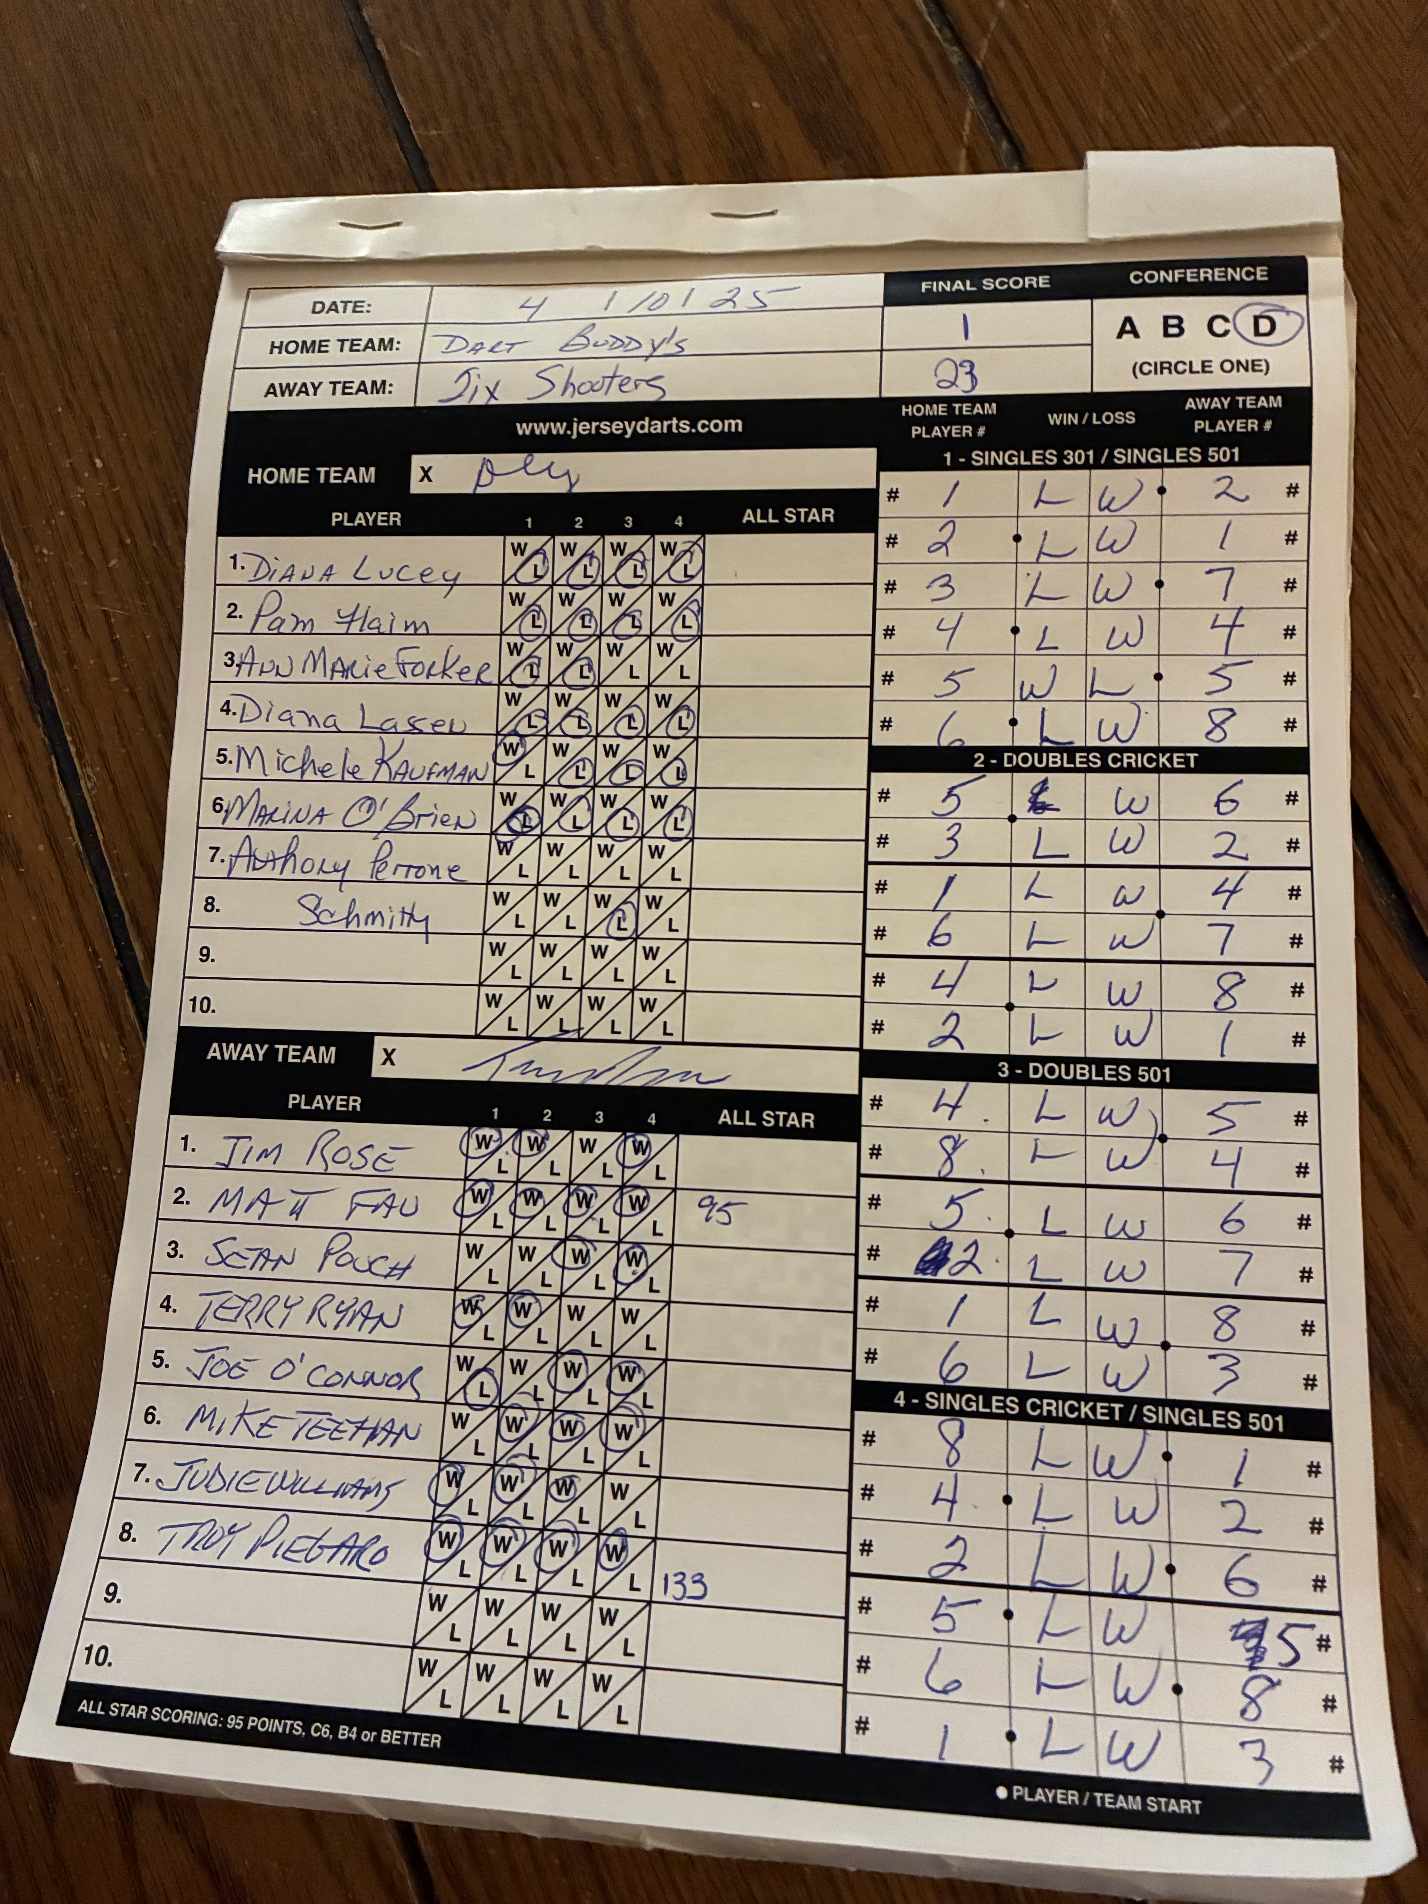 DATE: 4 1/01 25
HOME TEAM: DART BUDDY'S
AWAY TEAM: Six Shooters
FINAL SCORE
1
23
CONFERENCE
A B C D
(CIRCLE ONE)
www.jerseydarts.com
HOME TEAM X
PLAYER 1 2 3 4 ALL STAR
1. DIANA LUCEY W L W L W L W L
2. Pam Flaim W L W L W L W L
3. ANN MARIE FORKER W L W L W L W L
4. Diana Lassen W L W L W L W L
5. Michele KAUFMAN W L W L W L W L
6. MARINA O'Brien W L W L W L W L
7. Anthony Perrone W L W L W L W L
8. Schmitty W L W L W L W L
9. W L W L W L W L
10. W L W L W L W L
AWAY TEAM X
PLAYER 1 2 3 4 ALL STAR
1. JIM ROSE W L W L W L W L
2. MATT FAU W L W L W L W L 95
3. SEAN POUCH W L W L W L W L
4. TERRY RYAN W L W L W L W L
5. JOE O'CONNOR W L W L W L W L
6. MIKE TEEHAN W L W L W L W L
7. JUDIE WILLIAMS W L W L W L W L
8. TROY PIEGARO W L W L W L W L 133
9. W L W L W L W L
10. W L W L W L W L
ALL STAR SCORING: 95 POINTS, C6, B4 or BETTER
HOME TEAM PLAYER # WIN / LOSS AWAY TEAM PLAYER #
1 - SINGLES 301 / SINGLES 501
# 1 L W 2 #
# 2 L W 1 #
# 3 L W 7 #
# 4 L W 4 #
# 5 W L 5 #
# 6 L W 8 #
2 - DOUBLES CRICKET
# 5 L W 6 #
# 3 L W 2 #
# 1 L W 4 #
# 6 L W 7 #
# 4 L W 8 #
# 2 L W 1 #
3 - DOUBLES 501
# 4 L W 5 #
# 8 L W 4 #
# 5 L W 6 #
# 2 L W 7 #
# 1 L W 8 #
# 6 L W 3 #
4 - SINGLES CRICKET / SINGLES 501
# 8 L W 1 #
# 4 L W 2 #
# 2 L W 6 #
# 5 L W 5 #
# 6 L W 8 #
# 1 L W 3 #
● PLAYER / TEAM START